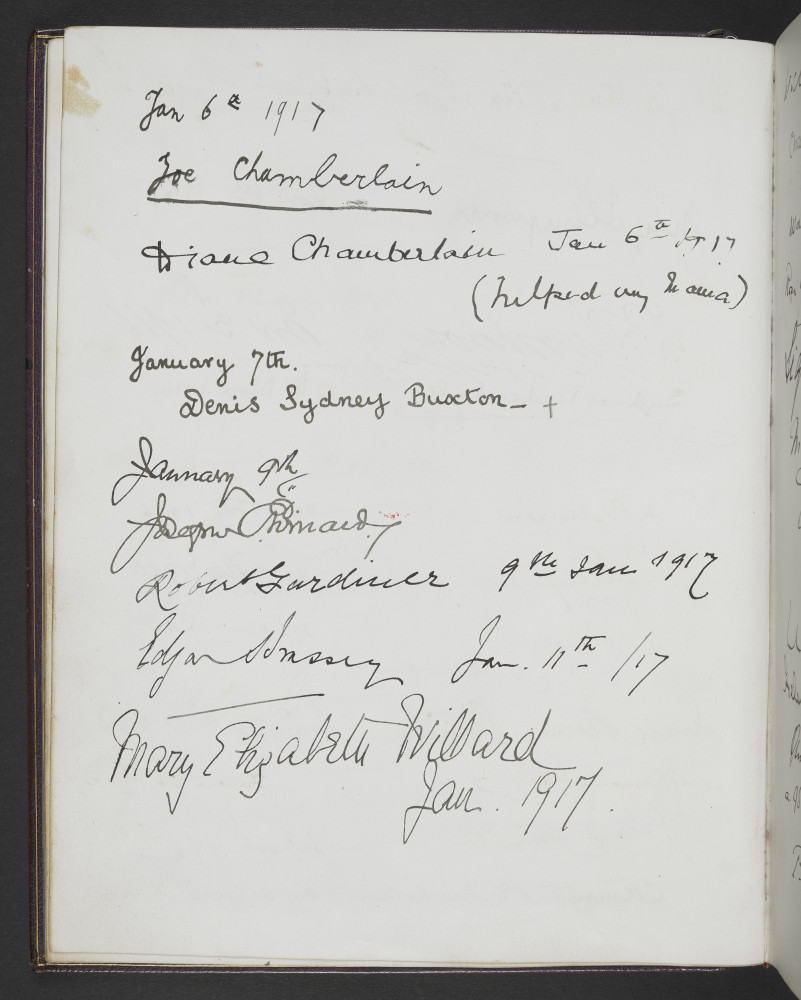 Jan 6th 1917
Joe Chamberlain
Diane Chamberlain Jan 6th 1917
(helped my Mama)
January 7th.
Denis Sydney Buxton - +
January 9th
Robert Gardiner 9th Jan 1917
Edgar Jan. 11th /17
Mary Elizabeth Willard
Jan. 1917.